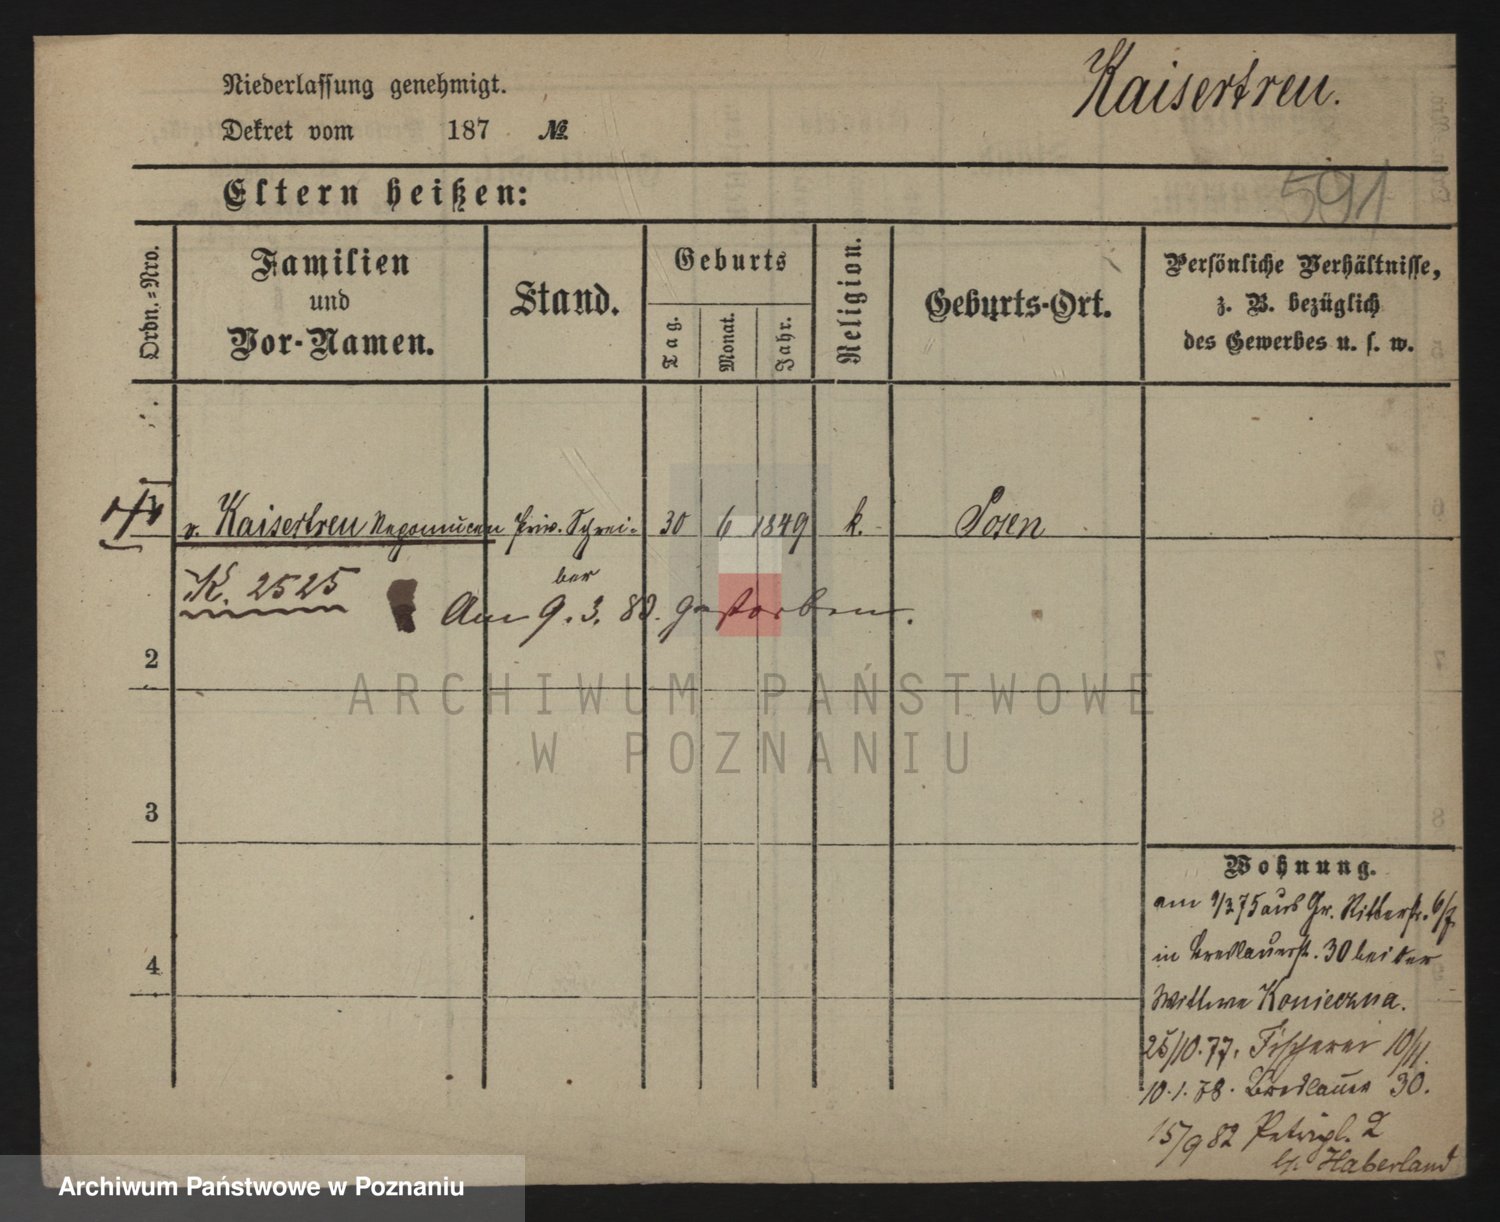 Kaisertreu.
Niederlassung genehmigt.
Dekret vom 187 №
591
Eltern heißen:
Ordn.-Nro.
Familien
und
Vor-Namen.
Stand.
Geburts
Tag.
Monat.
Jahr.
Religion.
Geburts-Ort.
Persönliche Verhältnisse,
z. B. bezüglich
des Gewerbes u. s. w.
v. Kaisertreu Nepomucen Priv. Schrei- 30 6 1849 k. Posen
ber
K. 2525
Am 9. 3. gestorben.
2
ARCHIWUM PAŃSTWOWE
W POZNANIU
3
4
Wohnung.
am 9/3 75 aus Gr. Ritterstr. 6/7
in Breslauerst. 30 bei der
Wittwe Konieczna.
25/10. 77. Fischerei 10/11.
10. 1. 78. Breslauer 30.
15/9 82 Petripl. 2
b/. Haberland
Archiwum Państwowe w Poznaniu